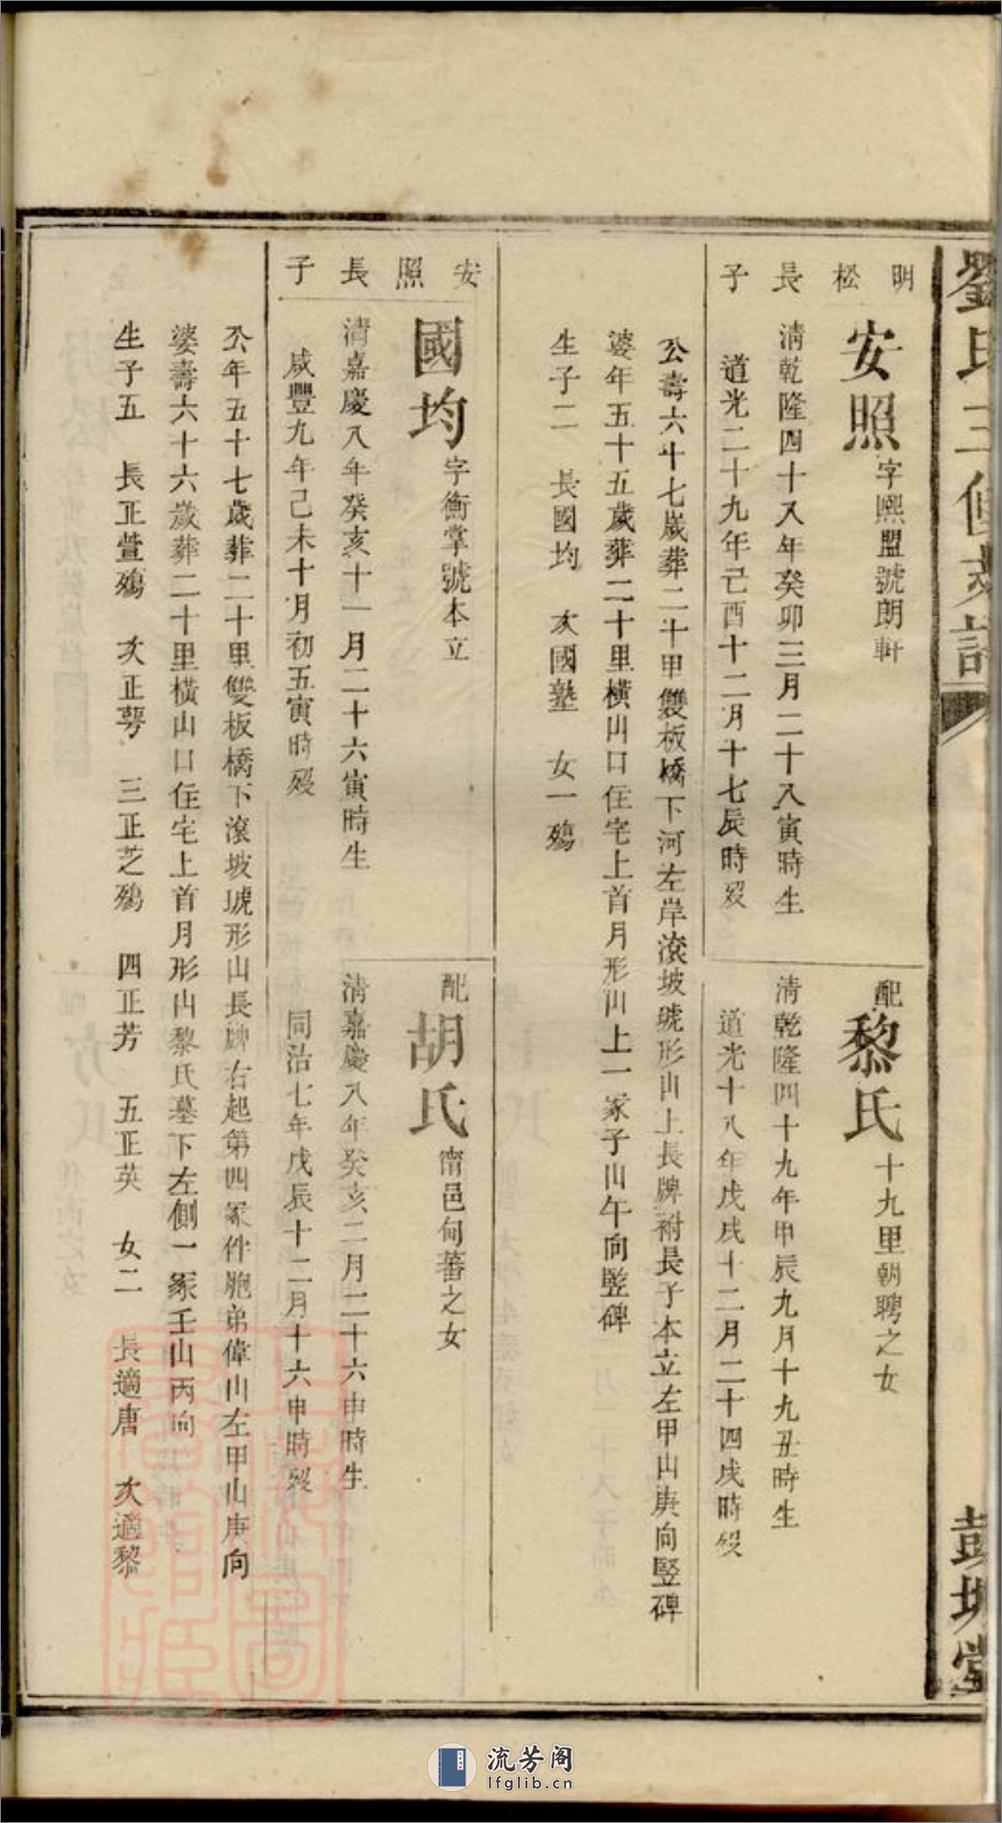 劉氏三修支譜
彭城堂
明松長子
安照字熙盟號朗軒
清乾隆四十八年癸卯三月二十八寅時生
道光二十九年己酉十二月十七辰時歿
配黎氏十九里朝聘之女
清乾隆四十九年甲辰九月十九丑時生
道光十八年戊戌十二月二十四戌時歿
公壽六十七歲葬二十甲雙板橋下河左岸滾坡琥形山上長牌祔長子本立左甲山庚向竪碑
婆年五十五歲葬二十里橫山口住宅上首月形山上一冢子山午向竪碑
生子二 長國均 次國塾 女一殤
安照長子
國均字衡掌號本立
清嘉慶八年癸亥十一月二十六寅時生
咸豐九年己未十月初五寅時歿
配胡氏甯邑甸蕃之女
清嘉慶八年癸亥二月二十六申時生
同治七年戊辰十二月十六申時歿
公年五十七歲葬二十里雙板橋下滾坡琥形山長牌右起第四冢件胞弟偉山左甲山庚向
婆壽六十六歲葬二十里橫山口住宅上首月形山黎氏墓下左側一冢壬山丙向
生子五 長正萱殤 次正萼 三正芝殤 四正芳 五正英 女二 長適唐 次適黎
上海圖書館藏
流芳阁
lfglib.cn